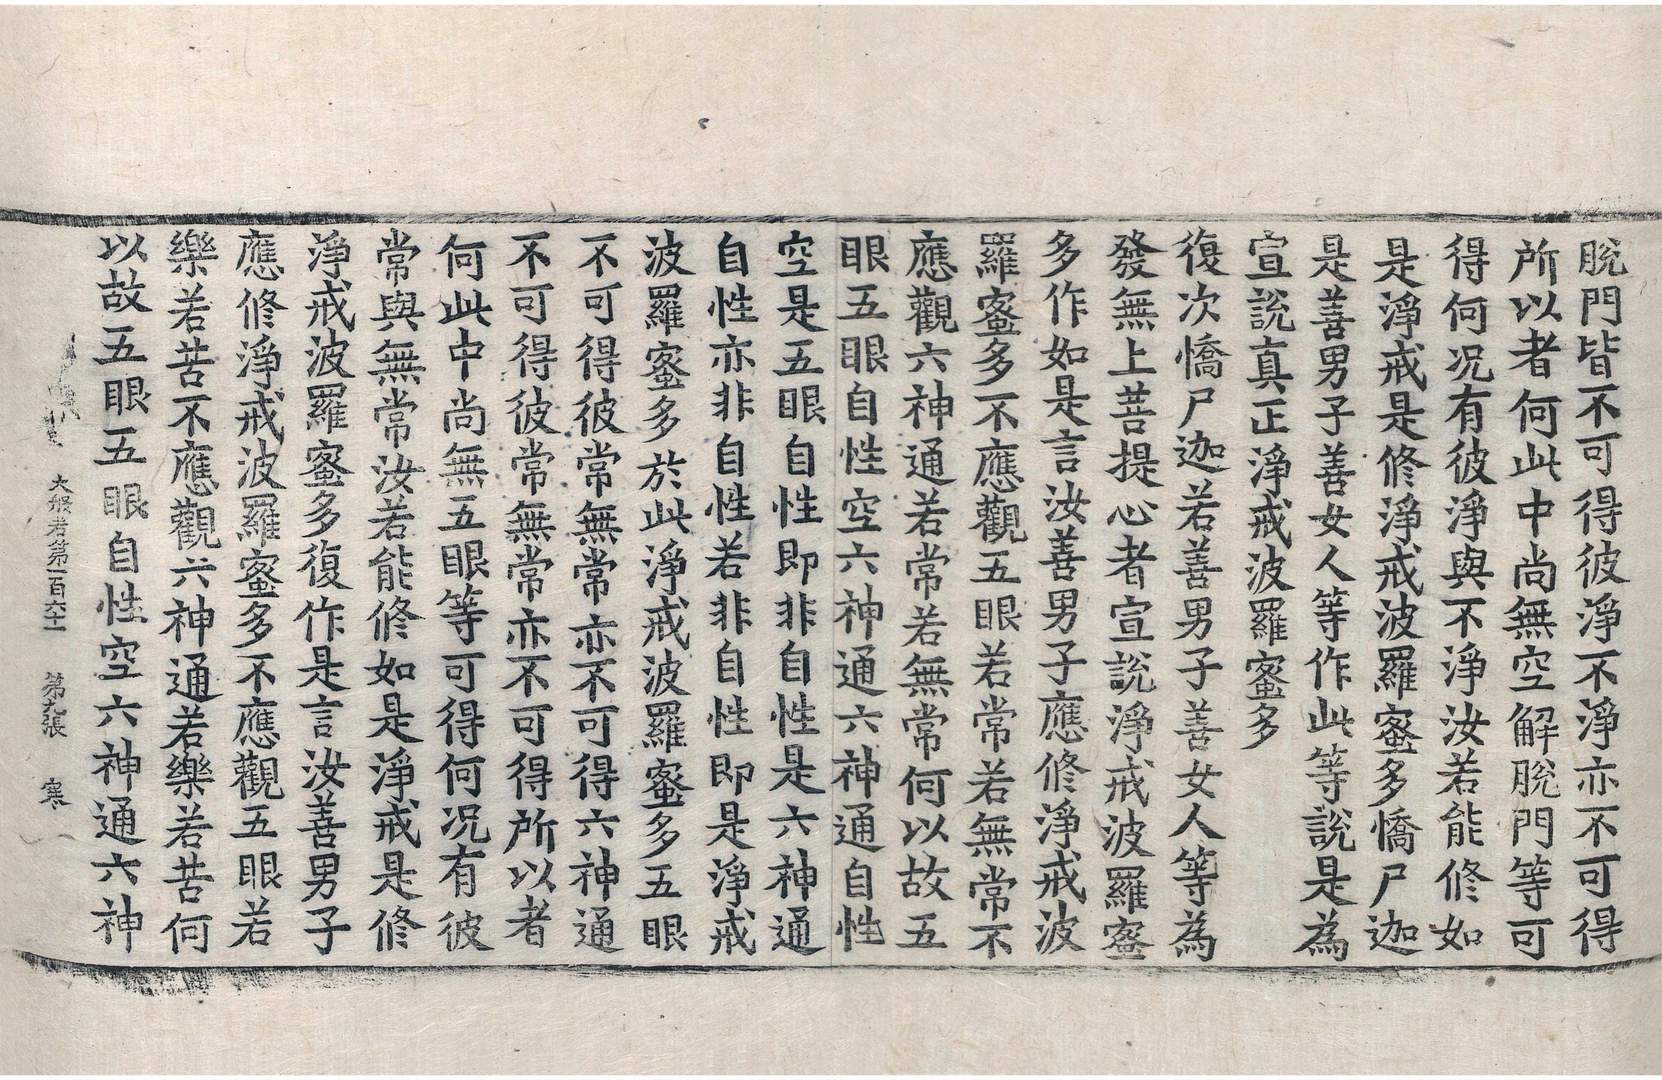 脫門皆不可得彼淨不淨亦不可得
所以者何此中尚無空解脫門等可
得何況有彼淨與不淨汝若能修如
是淨戒是修淨戒波羅蜜多憍尸迦
是善男子善女人等作此等說是為
宣說真正淨戒波羅蜜多
復次憍尸迦若善男子善女人等為
發無上菩提心者宣說淨戒波羅蜜
多作如是言汝善男子應修淨戒波
羅蜜多不應觀五眼若常若無常不
應觀六神通若常若無常何以故五
眼五眼自性空六神通六神通自性
空是五眼自性即非自性是六神通
自性亦非自性若非自性即是淨戒
波羅蜜多於此淨戒波羅蜜多五眼
不可得彼常無常亦不可得六神通
不可得彼常無常亦不可得所以者
何此中尚無五眼等可得何況有彼
常與無常汝若能修如是淨戒是修
淨戒波羅蜜多復作是言汝善男子
應修淨戒波羅蜜多不應觀五眼若
樂若苦不應觀六神通若樂若苦何
以故五眼五眼自性空六神通六神
大般若第一百六十一 第九張 寒